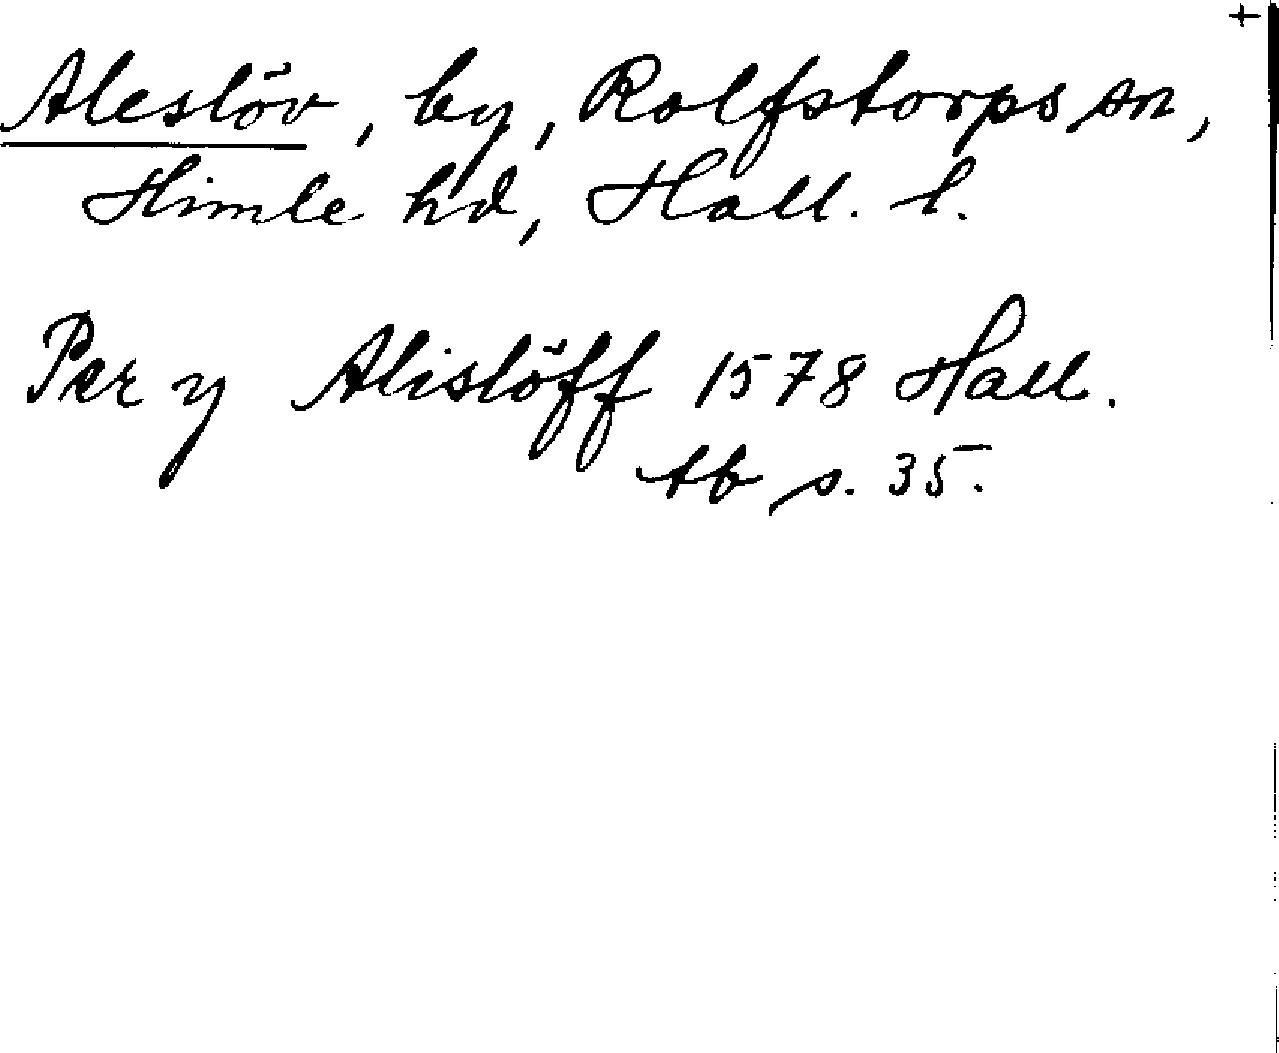 +
Aleslöv, by, Rolfstorps sn,
Himle hd, Hall. l.
Per y Alislöff 1578 Hall.
tb s. 35.